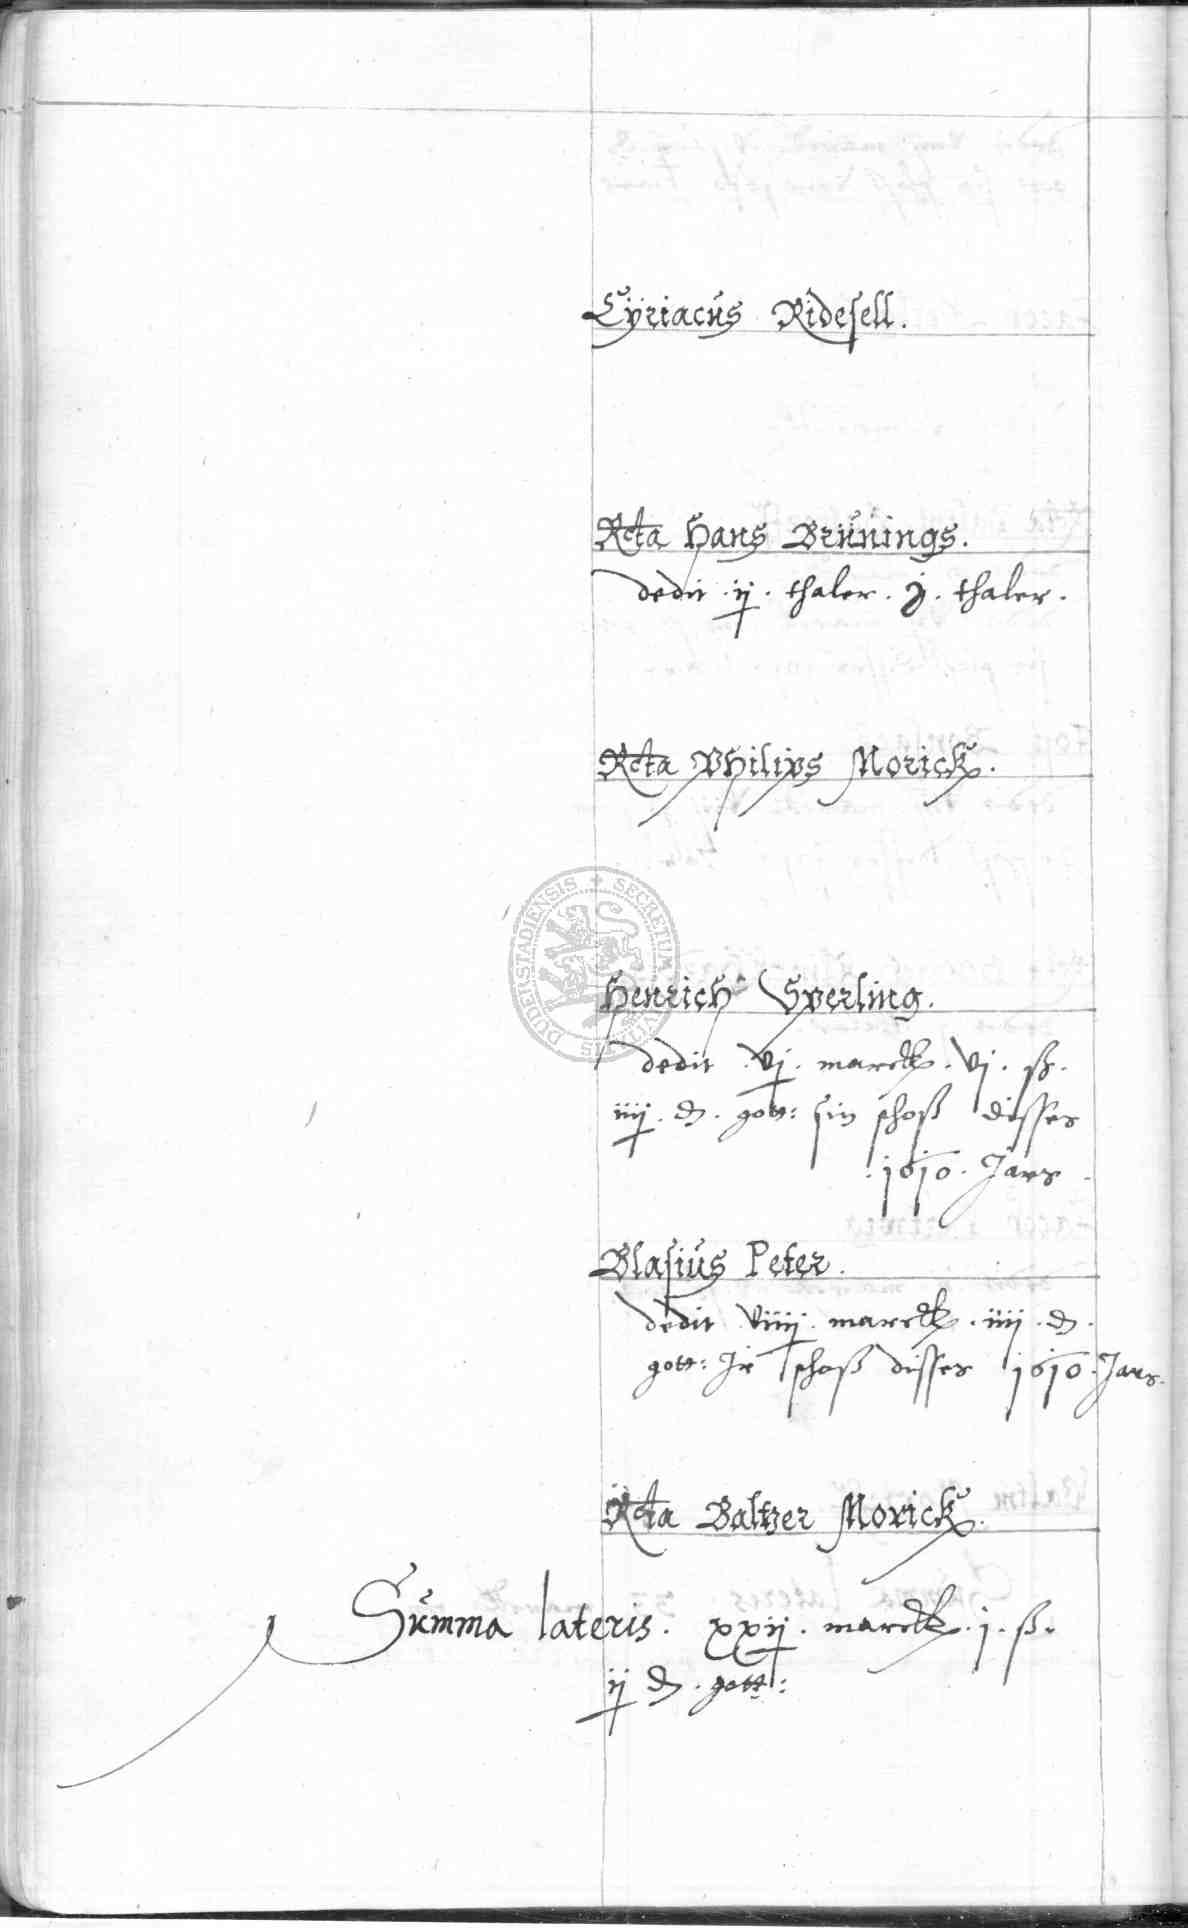 Cÿriacus Ridesell.
Rcta Hans Brunings.
dedit . ij . thaler . j . thaler .
Rcta Philips Morick .
Henrich Sperling .
dedit . vj . marck . vj . ß .
iiij . d . gott : sin schoß disses
. 1610 . Jars .
Blasius Peter .
dedit viiij . marck . iiij . d .
gott : Jr schoß disses 1610 . Jars .
Rcta Baltzer Morick .
Summa lateris . xxij . marck . j . ß .
ij d . gott :
SECRETUM CIVITATIS DUDERSTADIENSIS